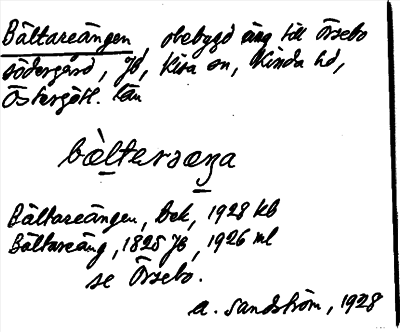 Bältareängen, obebygd äng till Örsebo
södergård, Jb, Kisa sn, Kinda hd,
Östergötl. län
bæ̀lteræŋa
Bältareängen, bek, 1928 kb
Bältareäng, 1825 Jb, 1926 ml
se Örsebo.
A. Sandström, 1928